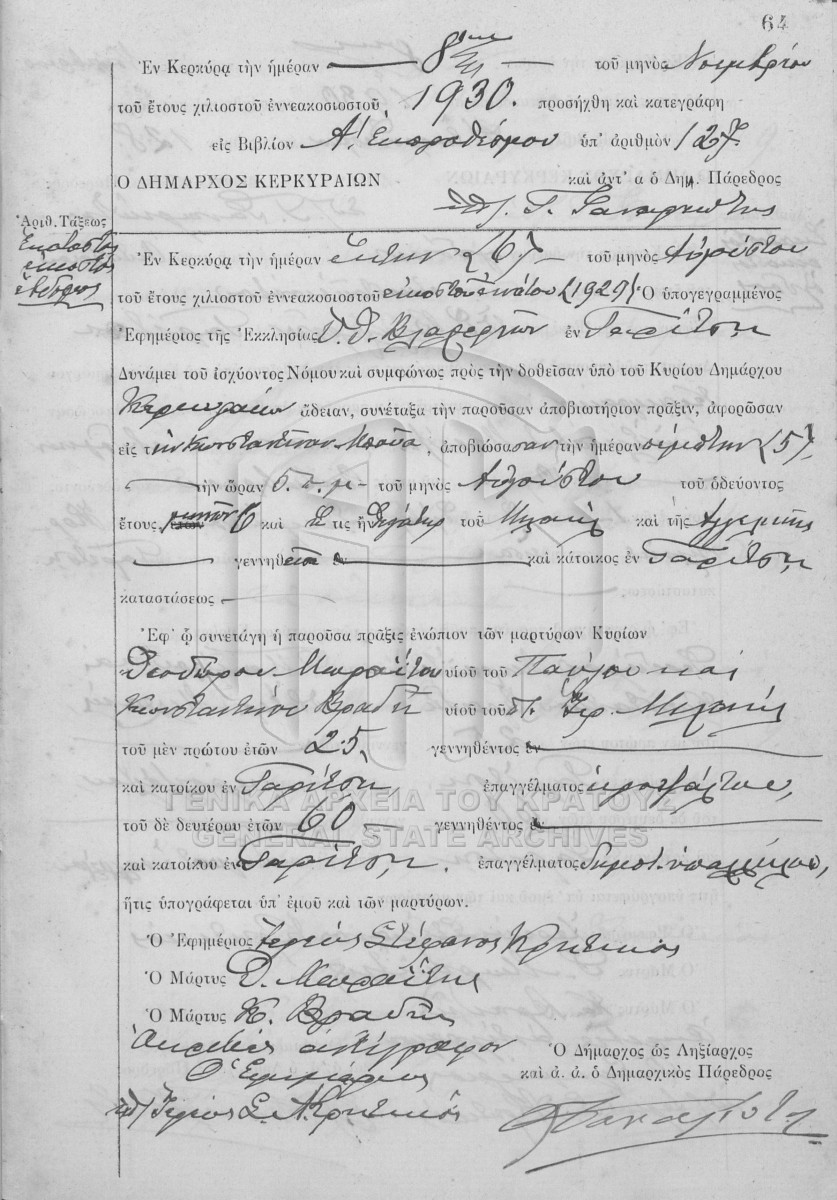 64
Ἐν Κερκύρᾳ τὴν ἡμέραν 8ην τοῦ μηνὸς Νοεμβρίου
τοῦ ἔτους χιλιοστοῦ ἐννεακοσιοστοῦ 1930. προσήχθη καὶ κατεγράφη
εἰς Βιβλίον Α' Ἐκπροθέσμου ὑπ' ἀριθμὸν 127.
Ο ΔΗΜΑΡΧΟΣ ΚΕΡΚΥΡΑΙΩΝ καὶ ἀντ' α ὁ Δημ. Πάρεδρος
Ἀριθ. Τάξεως
Ἑκατοστὸς
εἰκοστὸς
ἕβδομος
Ἐν Κερκύρᾳ τὴν ἡμέραν ἕκτην (6) τοῦ μηνὸς Αὐγούστου
τοῦ ἔτους χιλιοστοῦ ἐννεακοσιοστοῦ εἰκοστοῦ ἐνάτου (1929) Ὁ ὑπογεγραμμένος
Ἐφημέριος τῆς Ἐκκλησίας Υ. Θ. Βλαχερνῶν ἐν Γαρίτσῃ
Δυνάμει τοῦ ἰσχύοντος Νόμου καὶ συμφώνως πρὸς τὴν δοθεῖσαν ὑπὸ τοῦ Κυρίου Δημάρχου
Κερκυραίων ἄδειαν, συνέταξα τὴν παροῦσαν ἀποβιωτήριον πρᾶξιν, ἀφορῶσαν
εἰς τὴν Κωνσταντίναν Μπούα, ἀποβιώσασαν τὴν ἡμέραν πέμπτην (5)
τὴν ὥραν 5 π. μ. τοῦ μηνὸς Αὐγούστου τοῦ ὁδεύοντος
ἔτους, ἐτῶν μηνῶν 6 καὶ τις ἦν θυγάτηρ τοῦ Μιχαὴλ καὶ τῆς Ἀγγελικῆς
γεννηθεῖσα ἐν καὶ κάτοικος ἐν Γαρίτσῃ
καταστάσεως
Ἐφ' ᾧ συνετάγη ἡ παροῦσα πρᾶξις ἐνώπιον τῶν μαρτύρων Κυρίων
Θεοδώρου Μωραΐτου υἱοῦ τοῦ Παύλου καὶ
Κωνσταντίνου Βραδῆ υἱοῦ τοῦ Μιχαὴλ
τοῦ μὲν πρώτου ἐτῶν 25, γεννηθέντος ἐν
καὶ κατοίκου ἐν Γαρίτσῃ, ἐπαγγέλματος
ΓΕΝΙΚΑ ΑΡΧΕΙΑ ΤΟΥ ΚΡΑΤΟΥΣ
τοῦ δὲ δευτέρου ἐτῶν 60 γεννηθέντος ἐν
GENERAL STATE ARCHIVES
καὶ κατοίκου ἐν Γαρίτσῃ. ἐπαγγέλματος δημοτ. ὑπαλλήλου,
ἥτις ὑπογράφεται ὑπ' ἐμοῦ καὶ τῶν μαρτύρων.
Ὁ Ἐφημέριος Ἱερεὺς Στέφανος Κρητικὸς
Ὁ Μάρτυς Θ. Μωραΐτης
Ὁ Μάρτυς Κ. Βραδῆς
Ἀκριβὲς ἀντίγραφον
Ὁ Ἐφημέριος
Ἱερεὺς Σ. Κρητικὸς
Ὁ Δήμαρχος ὡς Ληξίαρχος
καὶ ἀ. ἀ. ὁ Δημαρχικὸς Πάρεδρος